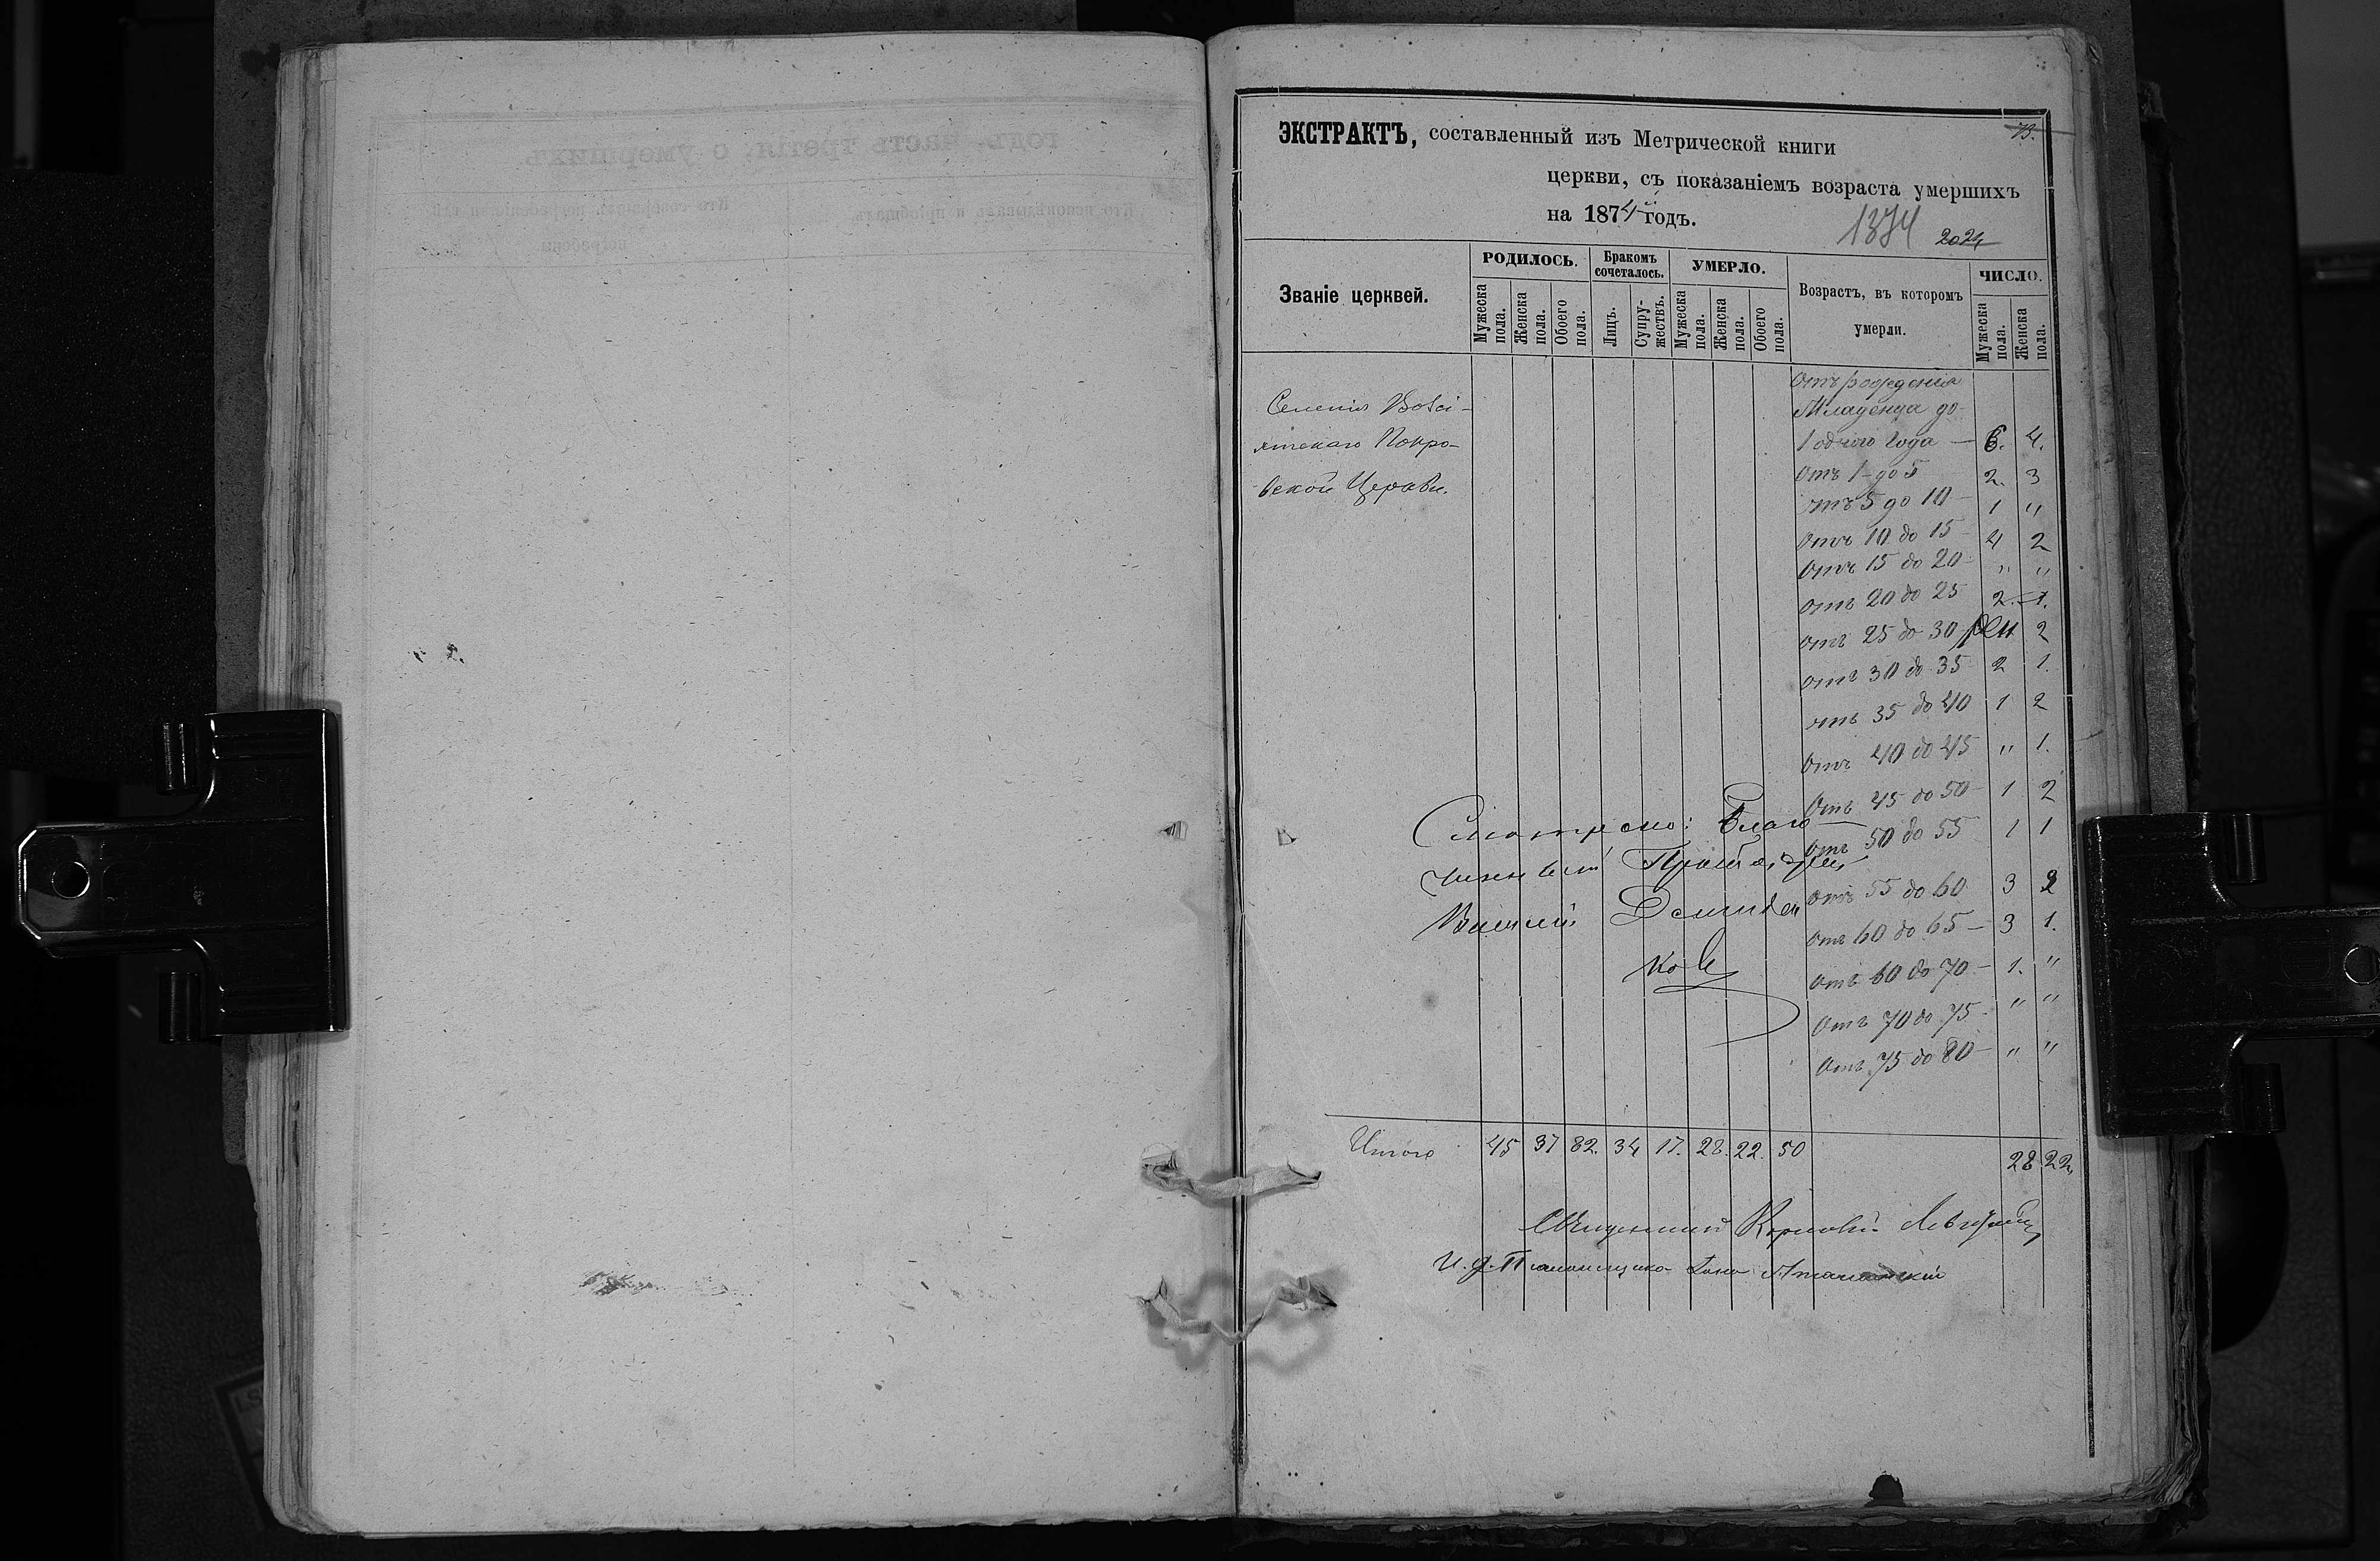 73.
ЭКСТРАКТЪ, составленный изъ Метрической книги
церкви, съ показаніемъ возраста умершихъ
на 1874й годъ.
1874 2024
Званіе церквей. РОДИЛОСЬ. Бракомъ сочеталось. УМЕРЛО. Возрастъ, въ которомъ умерли. ЧИСЛО.
Мужеска пола. Женска пола. Обоего пола. Лицъ. Супружествъ. Мужеска пола. Женска пола. Обоего пола. Мужеска пола. Женска пола.
Отъ рожденія
Младенца до
1 однаго года — 6. 4.
Отъ 1 - до 5 2. 3
отъ 5 до 10 - 1 "
Отъ 10 до 15 - 4 2
Отъ 15 до 20 - " "
Отъ 20 до 25 2. 1.
отъ 25 до 30 2
отъ 30 до 35 2 1.
отъ 35 до 40 1 2
Отъ 40 до 45 " 1.
Отъ 45 до 50 - 1 2
Отъ 50 до 55 1 1
Отъ 55 до 60 3 2
Отъ 60 до 65 — 3 1.
Отъ 60 до 70 — 1. "
Отъ 70 до 75 - " "
Отъ 75 до 80 — " "
Селенія
Покро-
вской Церкви.
Смотрено: Благо-
чинный
Демиден
ко
Итого 45 37 82. 34 17. 28. 22. 50 28 22
Священникъ
И. д. Пономщика
годъ, часть третія, о умершихъ